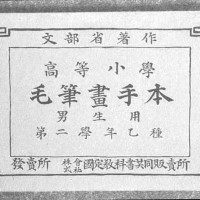 文部省著作
高等小學
毛筆畫手本
男生用
第二學年乙種
發賣所 株式會社國定教科書共同販賣所